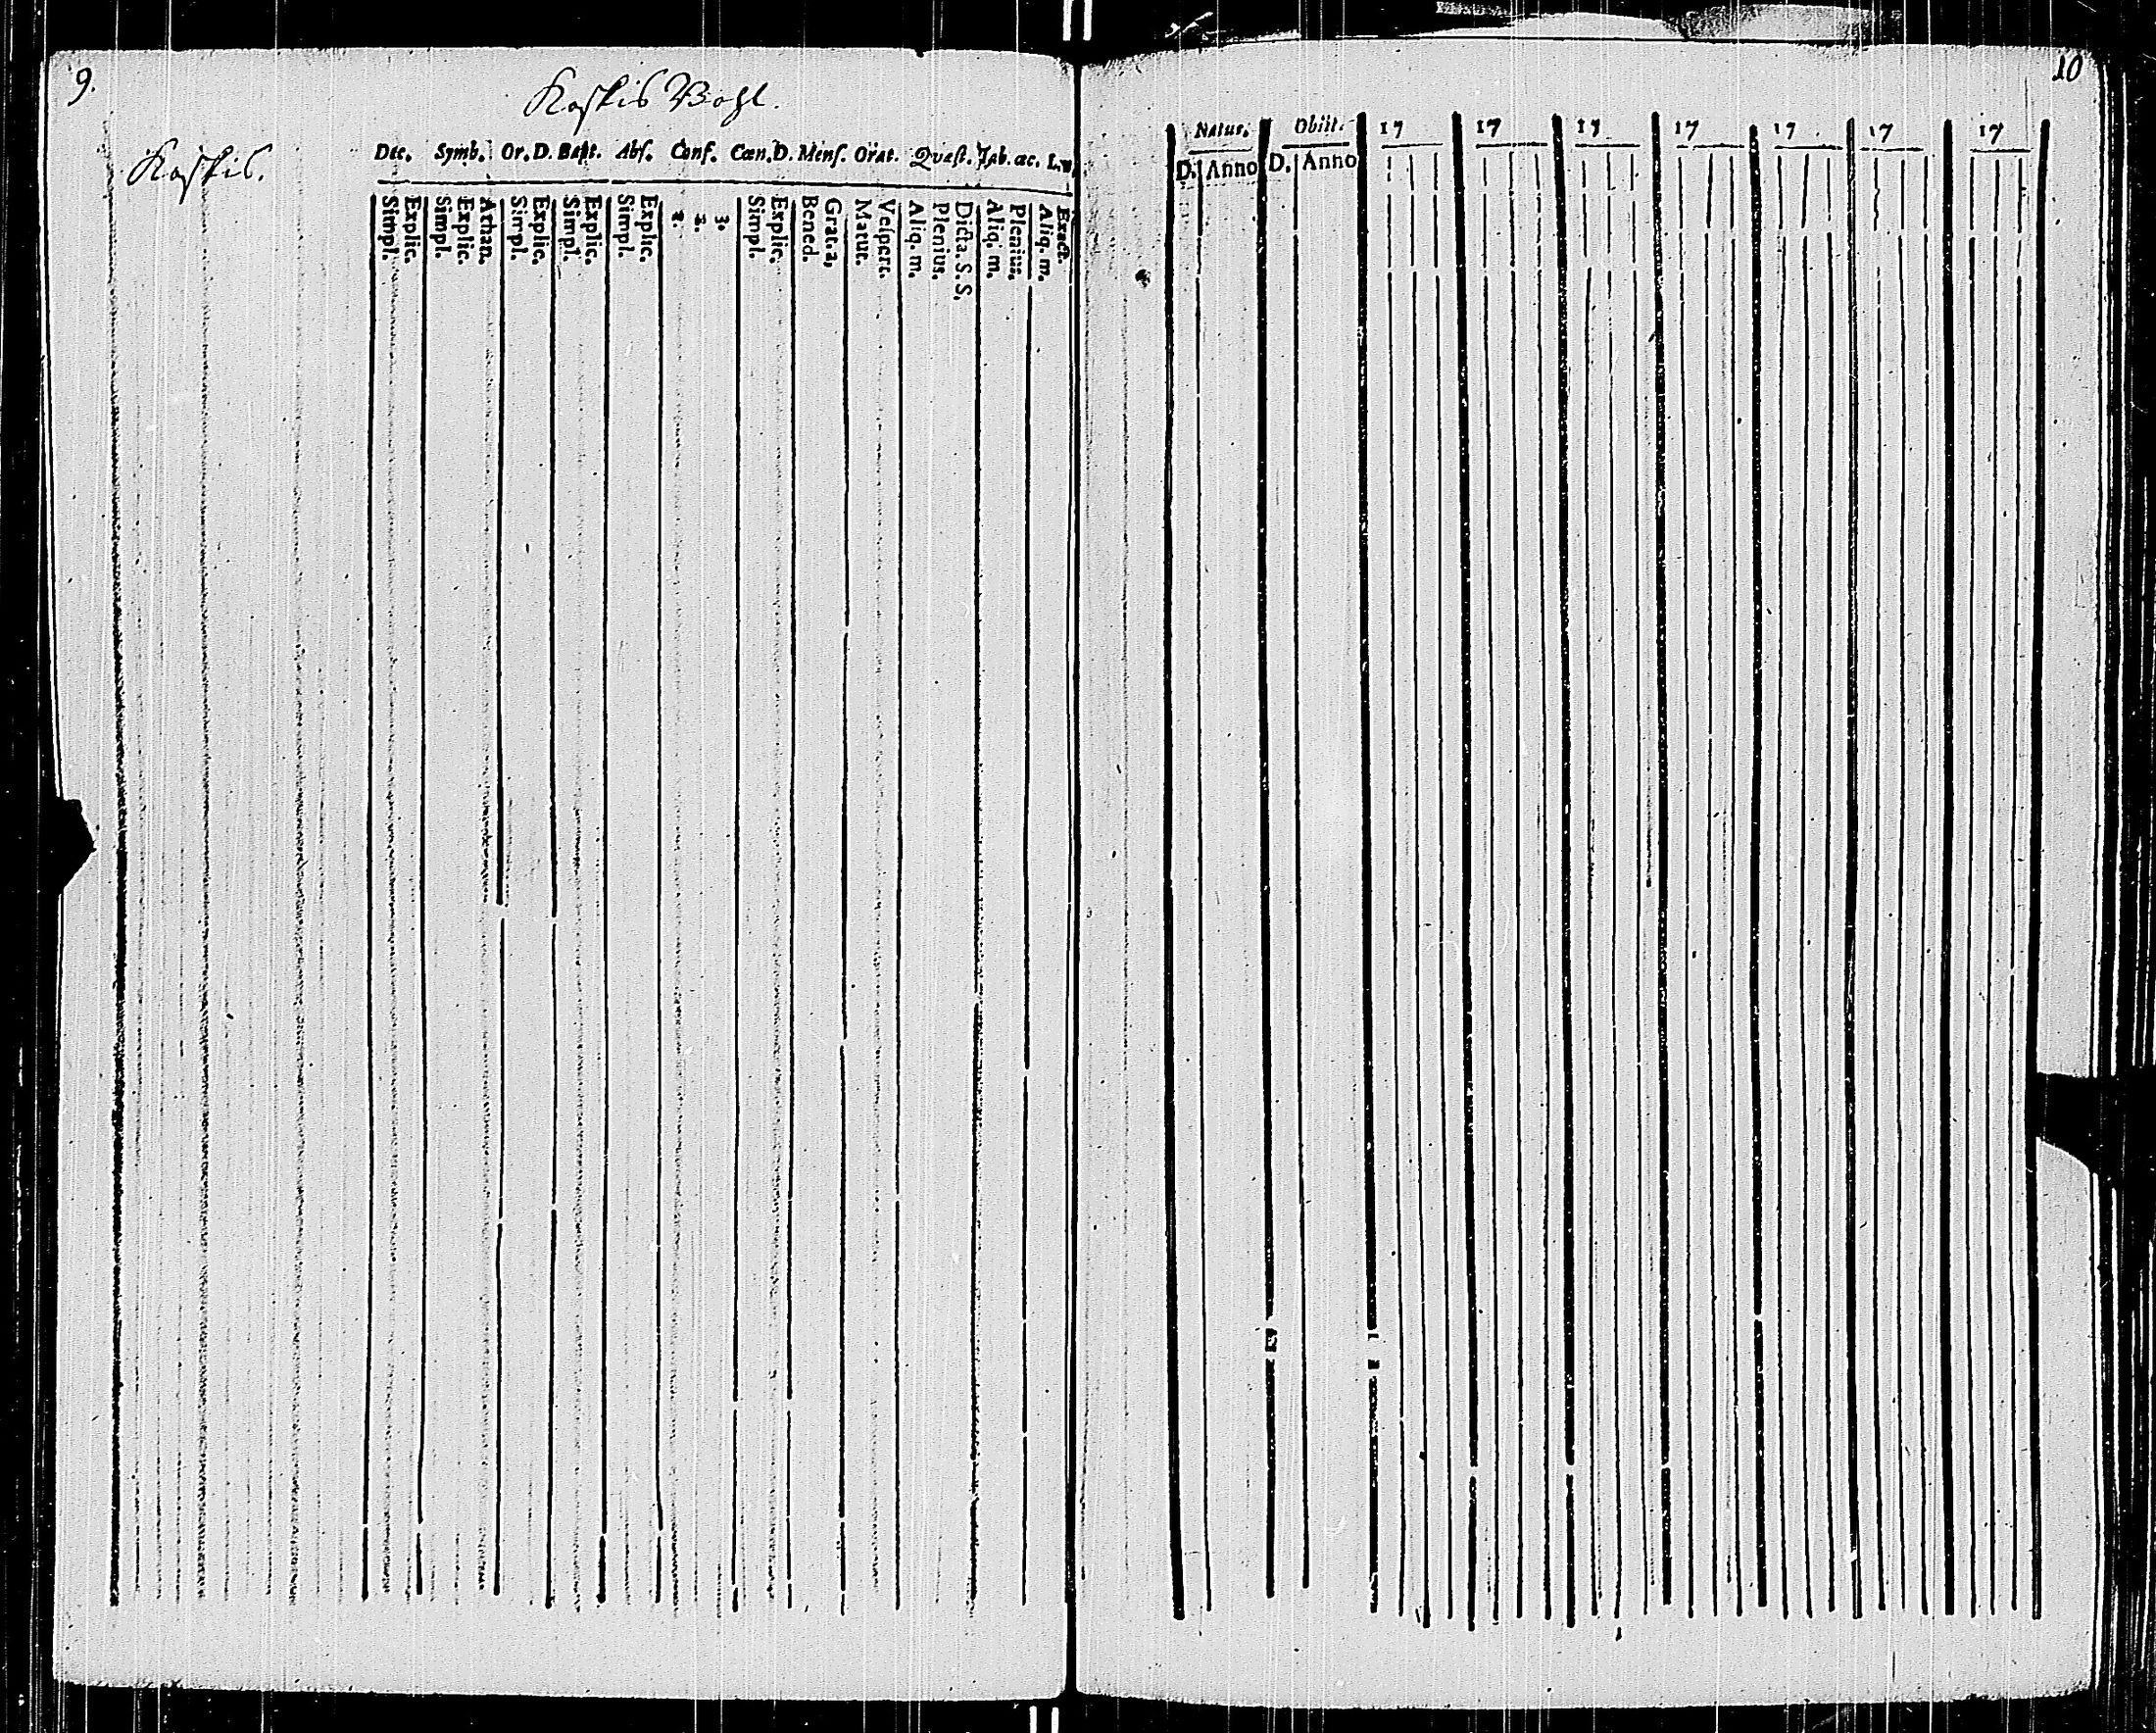 9.
Koskis Bohl.
Koskis.
Dec. Symb. Or. D. Bapt. Abs. Conf. Cœn. D. Mens. Orat. Quæst. Tab. œc. L.
Simpl.
Explic.
Simpl.
Explic.
Athan.
Simpl.
Explic.
Simpl.
Explic.
Simpl.
Explic.
2.
3.
Simpl.
Explic.
Bened.
Grat. a,
Matut.
Vespert.
Aliq. m.
Plenius.
Dicta. S. S.
Aliq. m.
Plenius.
Aliq. m.
Exact.
10
Natus. Obiit. 17 17 17 17 17 17 17
D. Anno D. Anno